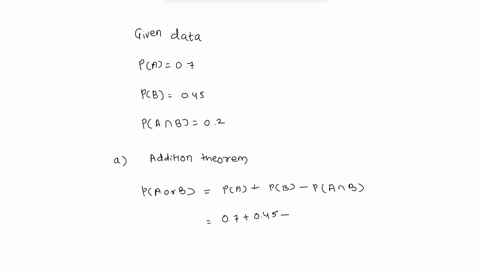 Given data
P(A) = 0.7
P(B) = 0.45
P(A ∩ B) = 0.2
a) Addition theorem
P(A or B) = P(A) + P(B) - P(A ∩ B)
= 0.7 + 0.45 -